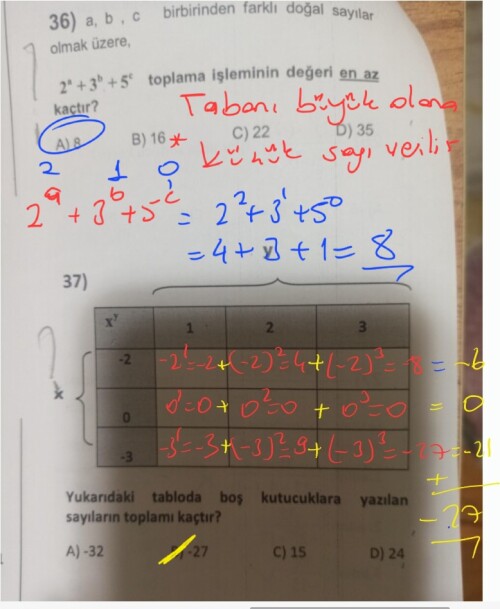 36) a, b , c birbirinden farklı doğal sayılar
olmak üzere,
2ᵃ + 3ᵇ + 5ᶜ toplama işleminin değeri en az
kaçtır?
Tabanı büyük olana
A) 8 B) 16 * C) 22 D) 35
küçük sayı verilir
2 1 0
2ᵃ + 3ᵇ + 5ᶜ = 2² + 3¹ + 5⁰
= 4 + 3 + 1 = 8
37)
y
xʸ 1 2 3
x
-2 -2¹=-2 + (-2)²=4 + (-2)³=-8 = -6
0 0¹=0 + 0²=0 + 0³=0 = 0
-3 -3¹=-3 + (-3)²=9 + (-3)³=-27 = -21
+
Yukarıdaki tabloda boş kutucuklara yazılan
sayıların toplamı kaçtır?
-27
A) -32 B) -27 C) 15 D) 24